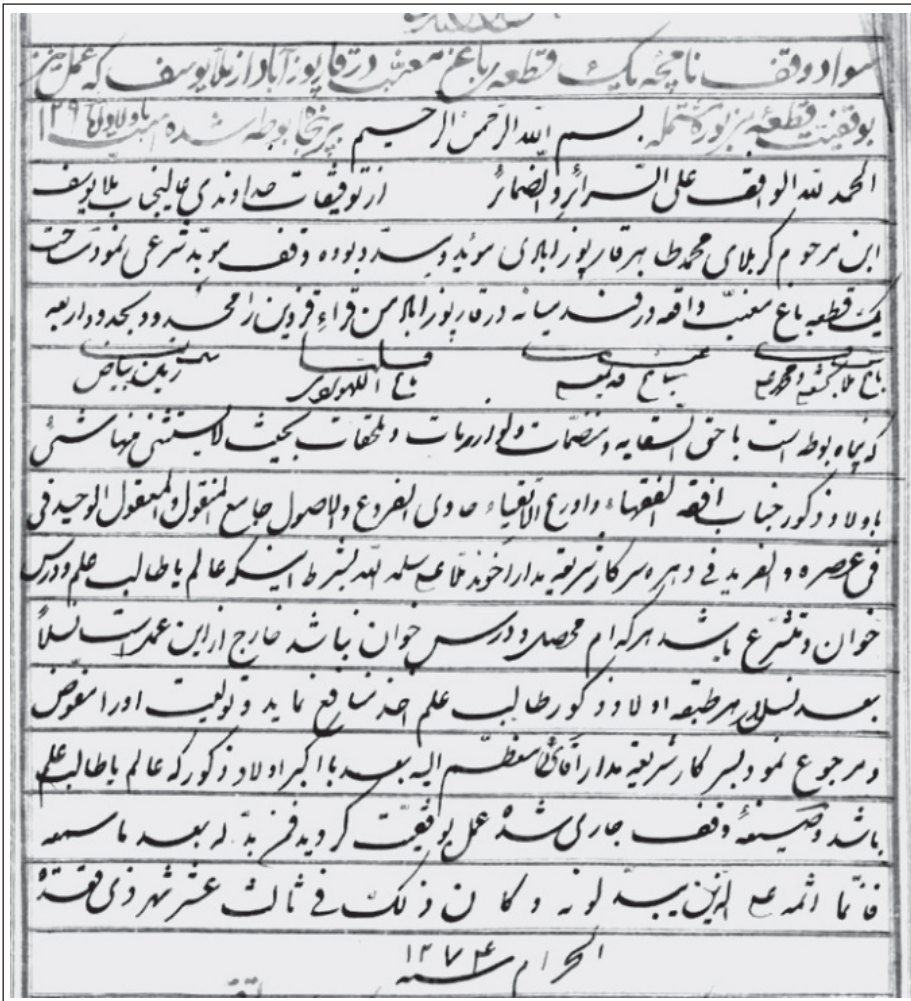 سواد وقف نامچه یک قطعه باغ معنب در قارپوزآباد از ملا یوسف که عمل
بوقفیت قطعه مزبوره بسم الله الرحمن الرحیم شده است
الحمد لله الواقف علی السرائر والضمائر از توفیقات خداوندی عالیجناب ملا یوسف
ابن مرحوم کربلای محمد طاهر قارپوزابادی موید و مسدد بوده وقف موبد شرعی نمود
یک قطعه باغ معنب واقعه در قارپوزاباد من قراء قزوین را محدود بحدود اربعه
باغ باغ باغ اللهویردی زمین بیاض
که پنجاه بوطه است با حق السقایه و منضمات و لوازمات و ملحقات بحیث لایستثنی منها شیئ
باولاد ذکور جناب افقه الفقهاء و اورع الاتقیاء حاوی الفروع والاصول جامع المنقول والمعقول الوحید فی
فی عصره و الفرید فی دهره سرکار شریعتمدار اخوند ملا سلمه الله بشرط اینکه عالم یا طالب علم و درس
خوان و متشرع باشد هرکدام محصل و درس خوان نباشد خارج از این عمل است نسلاً
بعد نسل هر طبقه اولاد ذکور طالب علم اخذ منافع نماید و تولیت او را مفوض
و مرجوع نمود بسرکار شریعتمدار اقائی معظم الیه بعد با اکبر اولاد ذکور که عالم یا طالب علم
باشد و صیغهٔ وقف جاری شده عمل بوقفیت گردید فمن بدله بعد ما سمعه
فانما اثمه علی الذین یبدلونه و کان ذلک فی ثالث عشر شهر ذی قعدة
الحرام سنه ۱۲۷۴